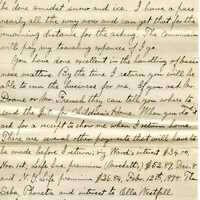 be done amidst snow and ice. I have a pass
nearly all the way now and can get that for the
remaining distance for the asking. The Commission
will pay my traveling expenses if I go.
You have done excellent in the handling of busi-
ness matters. By the time I return you will be able
to run the business for me. If you ask Mr.
Doane or Mr. French they can tell you where to
send the $ for Children's Home. When you do
ask for a receipt to show me when I return home.
There are several other payments that will have to
be made before I return; viz Ward's interest $34.00
Nov. 1st, Life Ins. premium $52.87 Dec. 8
and N.Y. Life premium $26.86, Feb. 12th, 1895. The
Deba, Phoneta and interest to Ella Westfall